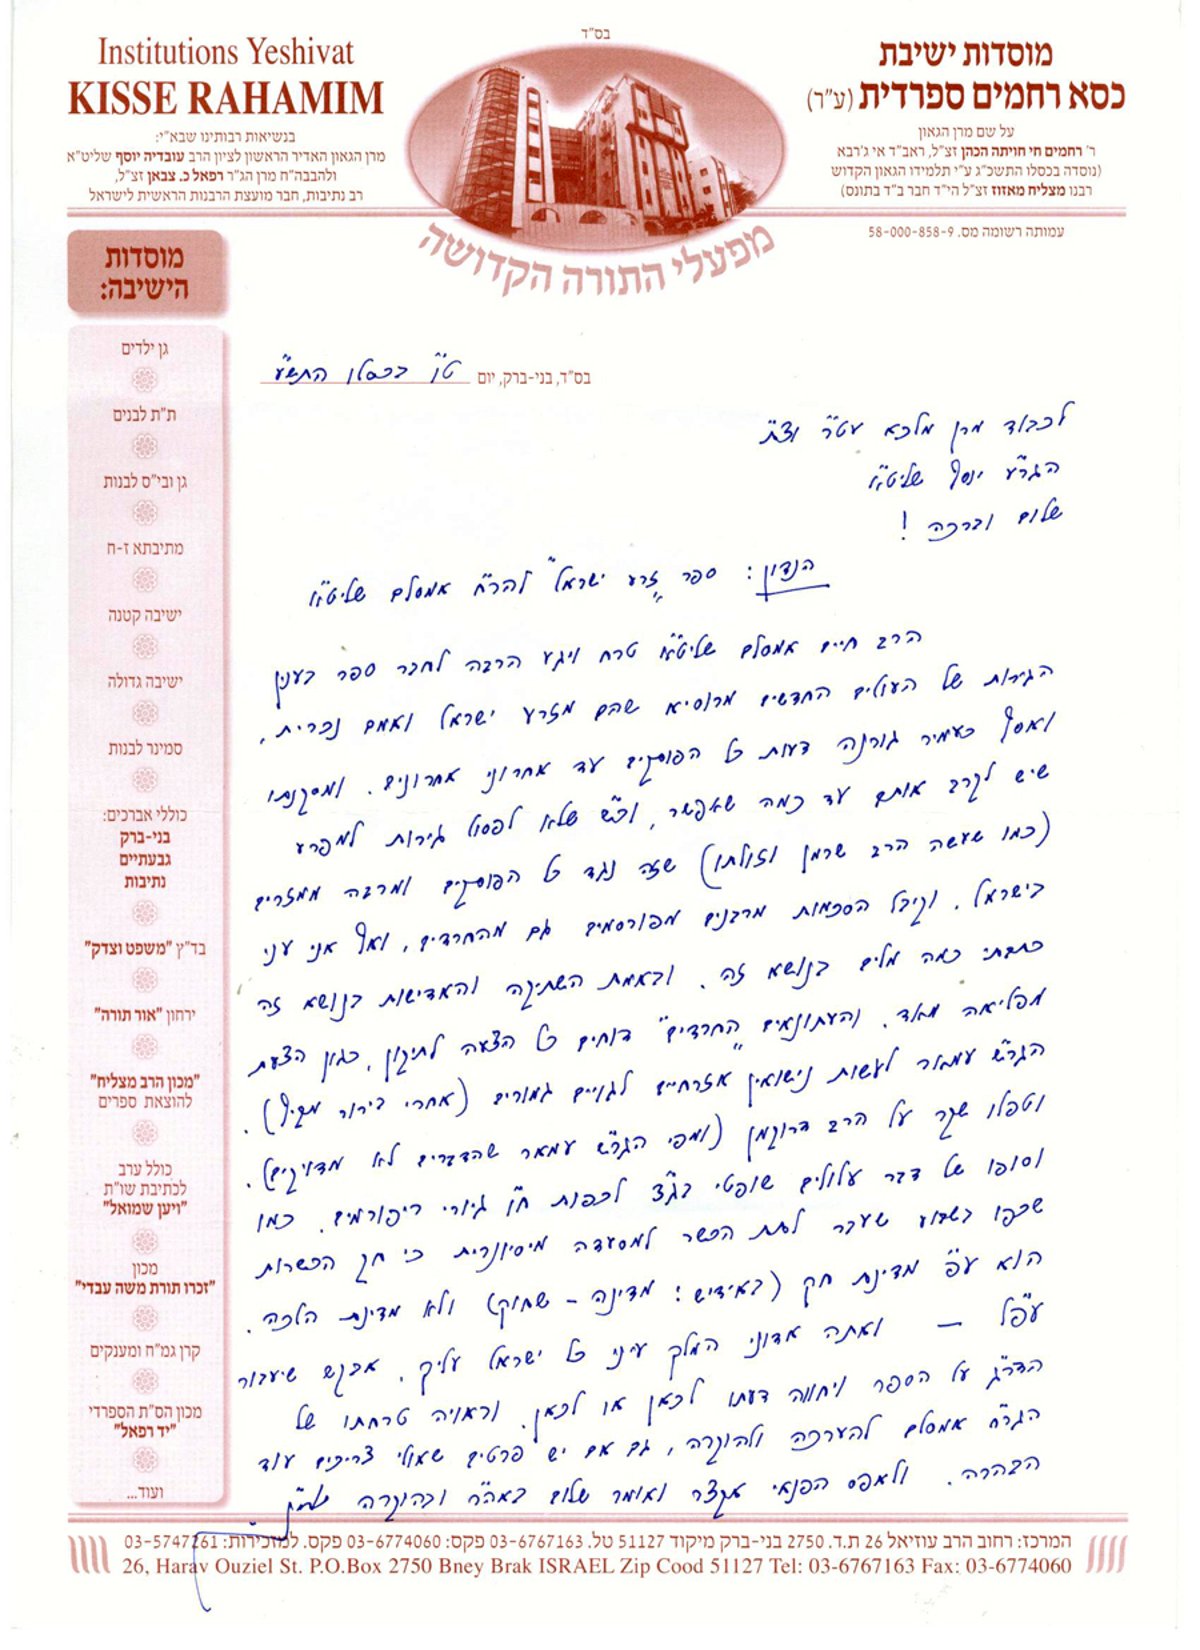 בס"ד
Institutions Yeshivat
KISSE RAHAMIM
בנשיאות רבותינו שבא"י:
מרן הגאון האדיר הראשון לציון הרב עובדיה יוסף שליט"א
ולהבבה"ח מרן הג"ר רפאל כ. צבאן זצ"ל,
רב נתיבות, חבר מועצת הרבנות הראשית לישראל
מוסדות ישיבת
כסא רחמים ספרדית (ע"ר)
על שם מרן הגאון
ר' רחמים חי חויתה הכהן זצ"ל, ראב"ד אי ג'רבא
(נוסדה בכסלו התשכ"ג ע"י תלמידו הגאון הקדוש
רבנו מצליח מאזוז זצ"ל הי"ד חבר ב"ד בתונס)
עמותה רשומה מס. 58-000-858-9
מפעלי התורה הקדושה
מוסדות
הישיבה:
גן ילדים
ת"ת לבנים
גן ובי"ס לבנות
מתיבתא ז-ח
ישיבה קטנה
ישיבה גדולה
סמינר לבנות
כוללי אברכים:
בני-ברק
גבעתיים
נתיבות
בד"ץ "משפט וצדק"
ירחון "אור תורה"
"מכון הרב מצליח"
להוצאת ספרים
כולל ערב
לכתיבת שו"ת
"ויען שמואל"
מכון
"זכרו תורת משה עבדי"
קרן גמ"ח ומענקים
מכון הס"ת הספרדי
"יד רפאל"
ועוד...
בס"ד, בני-ברק, יום ט"ו בכסלו התש"ע
לכבוד מרן מלכא עט"ר וצ"ת
הגר"ע יוסף שליט"א
שלום וברכה !
הנדון: ספר "זרע ישראל" להר"ח אמסלם שליט"א
הרב חיים אמסלם שליט"א טרח ויגע הרבה לחבר ספר בענין
הגירות של העולים החדשים מרוסיא שהם מזרע ישראל ואמם נכרית,
ואסף כעמיר גורנה דעות כל הפוסקים עד אחרוני אחרונים. ומסקנתו
שיש לקרב אותם עד כמה שאפשר, וכ"ש שלא לפסול גירות למפרע
(כמו שעשה הרב שרמן וזולתו) שזה נגד כל הפוסקים ומרבה ממזרים
בישראל. וקיבל הסכמות מרבנים מפורסמים גם מהחרדים, ואף אני עני
כתבתי כמה מלים בנושא זה. ובאמת השתיקה והאדישות בנושא זה
מפליאה מאד. והעתונאים "החרדים" דוחים כל הצעה לתיקון, כגון הצעת
הגר"ש עמאר לעשות נישואין אזרחיים לגויים גמורים (אחרי בירור מקיף).
וטפלו שקר על הרב דרוקמן (ומפי הגר"ש עמאר שהדברים לא מדויקים).
וסופו של דבר עלולים שופטי בג"צ לכפות ח"ו גיורי ריפורמים, כמו
שכפו בשבוע שעבר לתת הכשר למסעדה מיסיונרית כי חק הכשרות
הוא ע"פ מדינת חק (באידיש: מדינה - שחוק) ולא מדינת הלכה.
עכ"ל — ואתה אדוני המלך עיני כל ישראל עליך. אבקש שיעבור
הדר"ג על הספר ויחווה דעתו לכאן או לכאן. וראויה טרחתו של
הגר"ח אמסלם להערכה ולהוקרה, גם אם יש פרטים שאולי צריכים עוד
הבהרה. ולאפס הפנאי אקצר ואומר שלום באה"ר ובהוקרה
המרכז: רחוב הרב עוזיאל 26 ת.ד. 2750 בני-ברק מיקוד 51127 טל. 03-6767163 פקס: 03-6774060 פקס. למזכירות: 03-5747261
26, Harav Ouziel St. P.O.Box 2750 Bney Brak ISRAEL Zip Cood 51127 Tel: 03-6767163 Fax: 03-6774060